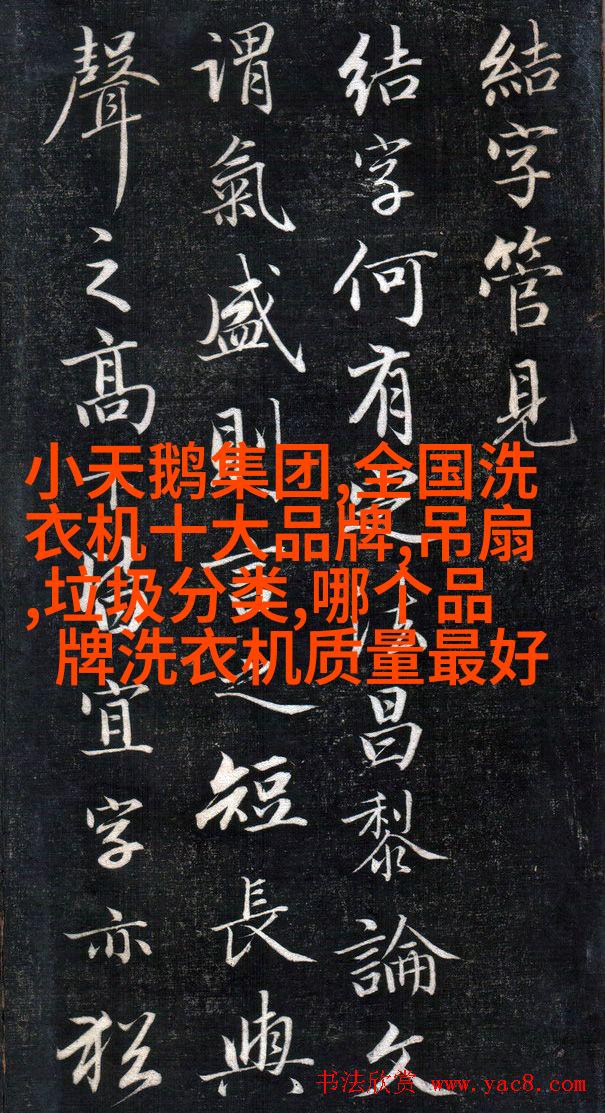 結字管見
结字何有定法昌黎論文
謂氣盛則言之短長與
聲之高下皆宜字亦猶
小天鹅集团,全国洗
衣机十大品牌,吊扇
,垃圾分类,哪个品
牌洗衣机质量最好
书法欣赏 www.yac8.com